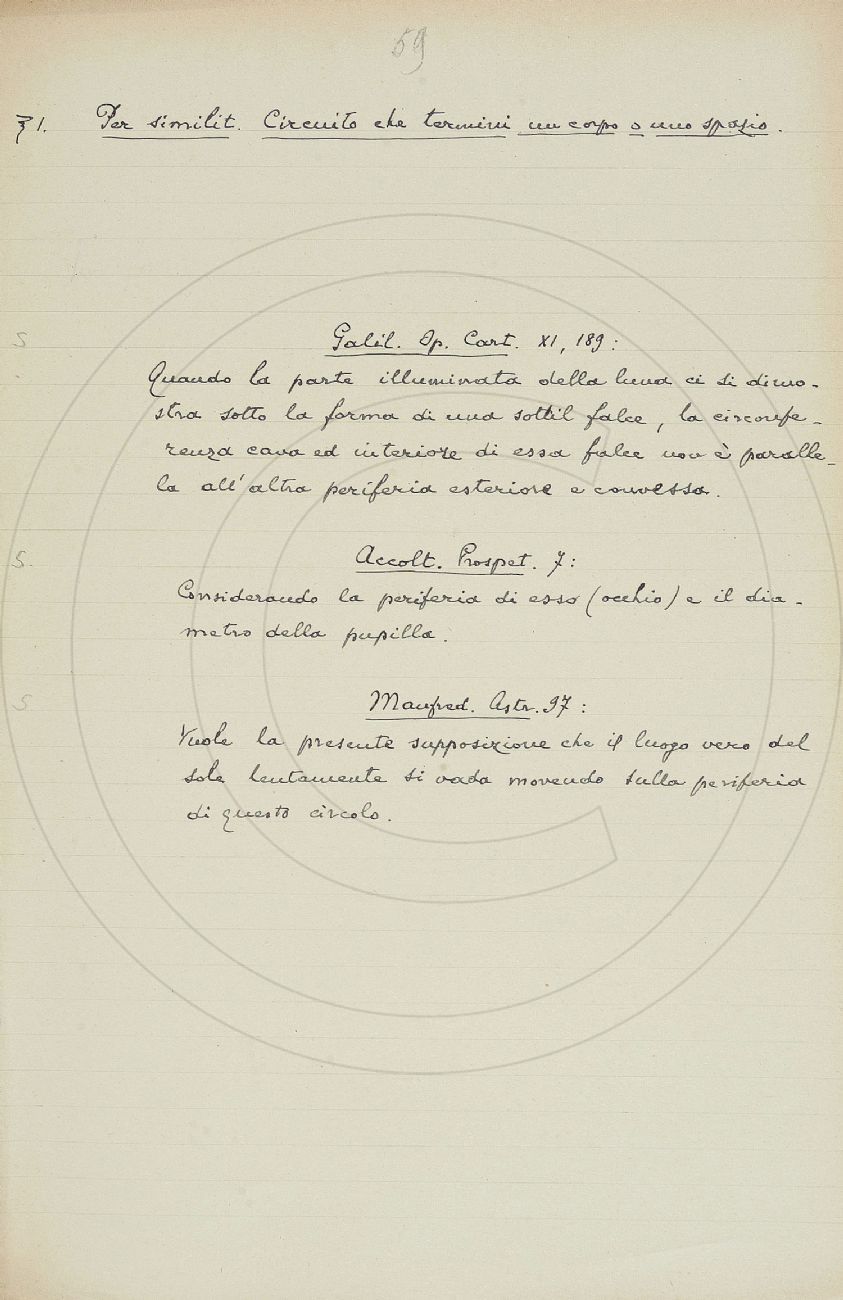 59
§ 1. Per similit. Circuito che termini un corpo o uno spazio.
S Galil. Op. Cart. XI, 189:
Quando la parte illuminata della luna ci si dimo-
stra sotto la forma di una sottil falce, la circonfe-
renza cava ed interiore di essa falce non è paralle-
la all'altra periferia esteriore e convessa.
S. Accolt. Prospet. 7:
Considerando la periferia di esso (occhio) e il dia-
metro della pupilla.
S Manfred. Astr. 97:
Vuole la presente supposizione che il luogo vero del
sole lentamente si vada movendo sulla periferia
di questo circolo.